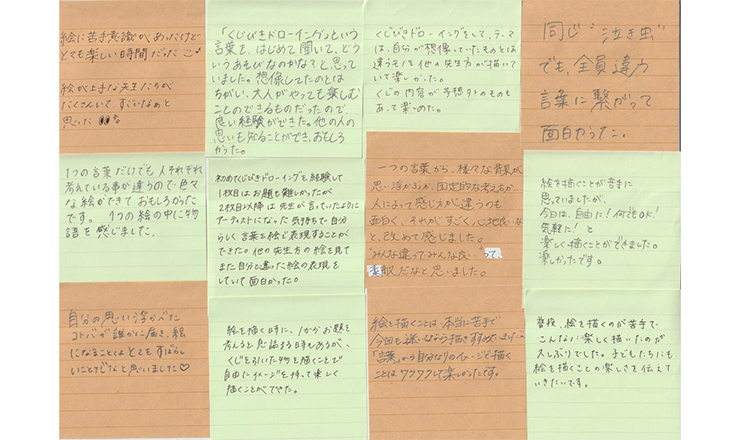 絵に苦手意識があったけど
とても楽しい時間だった
絵が上手な先生たちが
たくさんいて すごいなぁと
思った
「くじびきドローイング」という
言葉を、はじめて聞いて、どう
いうあそびなのかな？と思って
いました。想像してたのとは
ちがい、大人がやっても楽しむ
ことのできるものだったので
良い経験ができた。他の人の
思いも知ることができ、おもしろ
かった。
くじびきドローイングをして、テーマ
は、自分が想像していたものとは
違うモノを他の先生方が描いて
いて楽しかった。
くじの内容が予想外のものも
あって楽しめた。
同じ"泣き虫"
でも、全員違う
言葉に繋がって
面白かった。
1つの言葉だけでも人それぞれ
考えている事が違うので色々
な絵ができて おもしろかった
です。 1つの絵の中に物
語を感じました。
初めてくじびきドローイングを経験して
1枚目はお題も難しかったが
2枚目以降は先生が言っていたように
アーティストになった気持ちで自分
らしく言葉を絵で表現することが
できた。他の先生方の絵を見て
また自分と違った絵の表現を
していて面白かった。
一つの言葉から、様々な背景が
思い浮かぶが、固定的な考え方が
人によって感じ方が違うのも
面白く、それがすごく心地良いな
と、改めて感じました。
みんな違ってみんな良いって、
素敵だなと思いました。
絵を描くことが苦手に
思っていましたが、
今日は、自由に！何でもOK！
気軽に！と
楽しく描くことができました。
楽しかったです。
自分の思い浮かべた
コトバが誰かに届き、絵
になることはとてもすばらし
いことだなと思いました♡
絵を描く時に、1からお題を
考えると 息詰まる時もあるが、
くじを引いた物を描くことで
自由にイメージを持って楽しく
描くことができた。
絵を描くことは本当に苦手で
今回も
「言葉」から自分なりのイメージで描く
ことはワクワクして楽しかったです。
普段、絵を描くのが苦手で
こんなに楽しく描いたのが
久しぶりでした。子どもたちにも
絵を描くことの楽しさを伝えて
いきたいです。